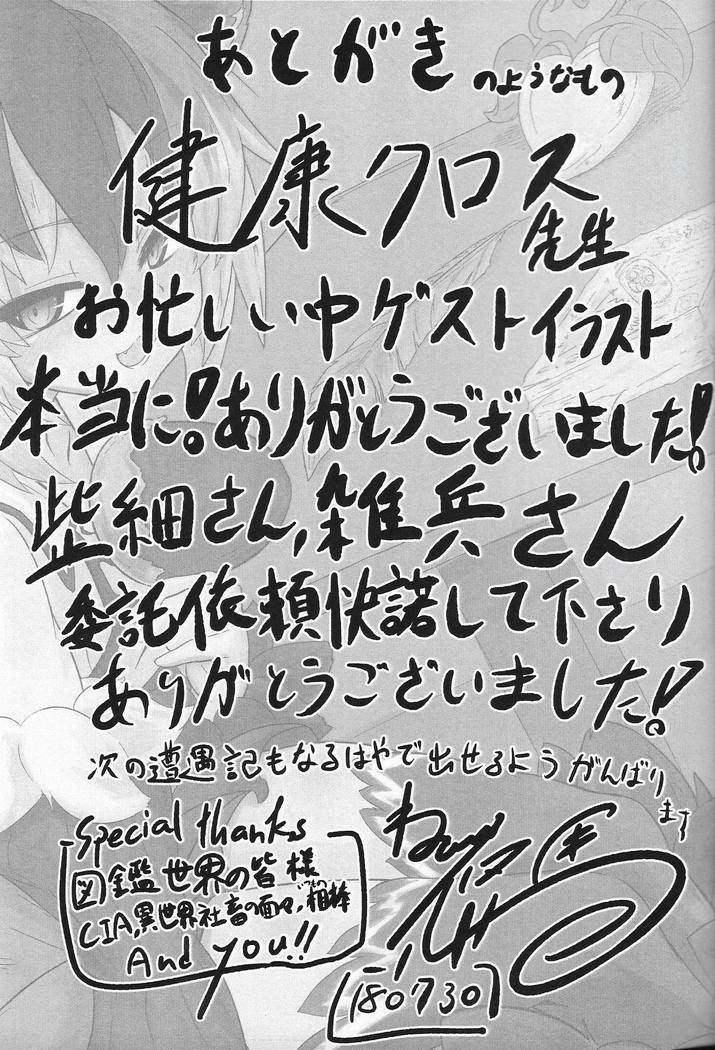 あとがきのようなもの
健康クロス
先生
お忙しい中ゲストイラスト
本当に!ありがとうございました!
柴細さん,雑兵さん
委託依頼快諾して下さり
ありがとうございました!
次の遭遇記もなるはやで出せるようがんばり
ます
Special thanks
図鑑世界の皆様
CIA,異世界社畜の面々,相棒
And you!!
180730